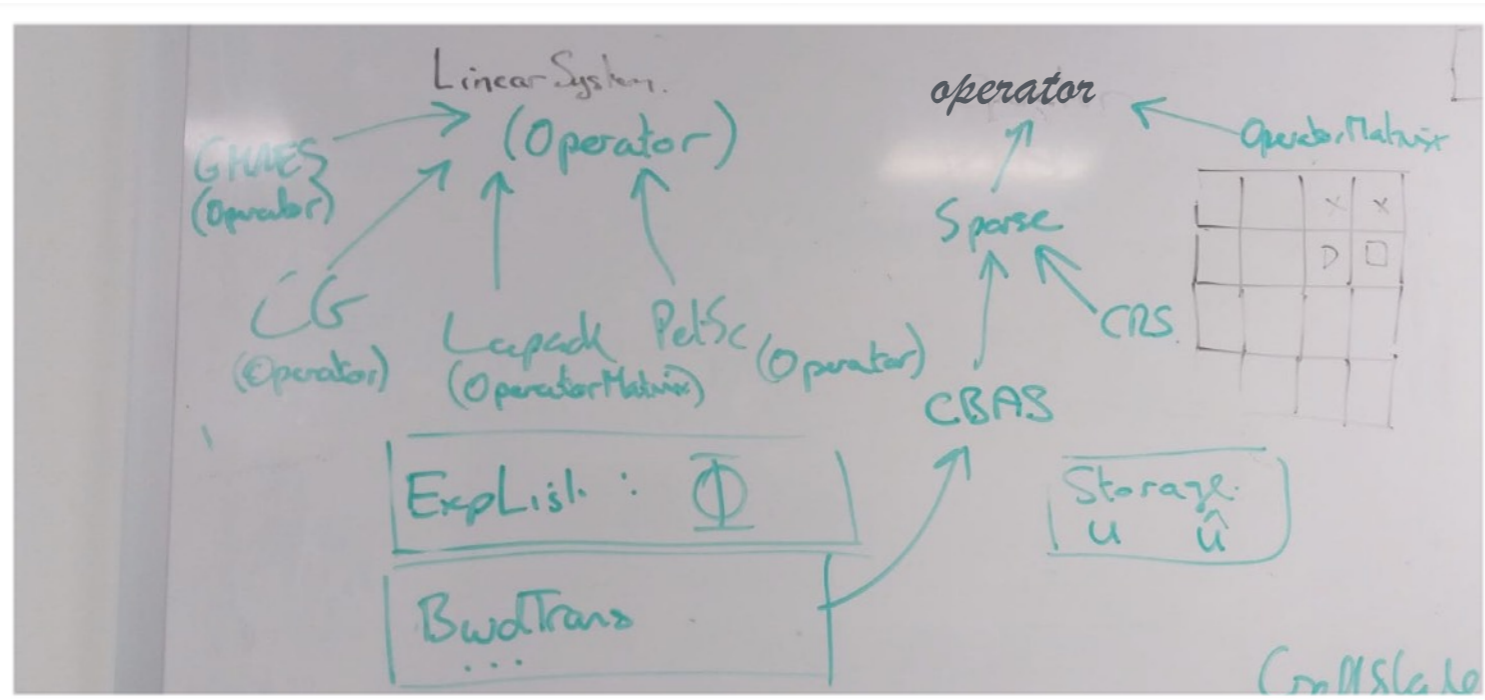 LinearSystem.
(Operator)
GMRES
(Operator)
CG
(Operator)
Lapack
(OperatorMatrix)
PetSc
(Operator)
operator
OperatorMatrix
Sparse
CRS
x x
D □
ExpList : Φ
BwdTrans
...
Storage.
u û